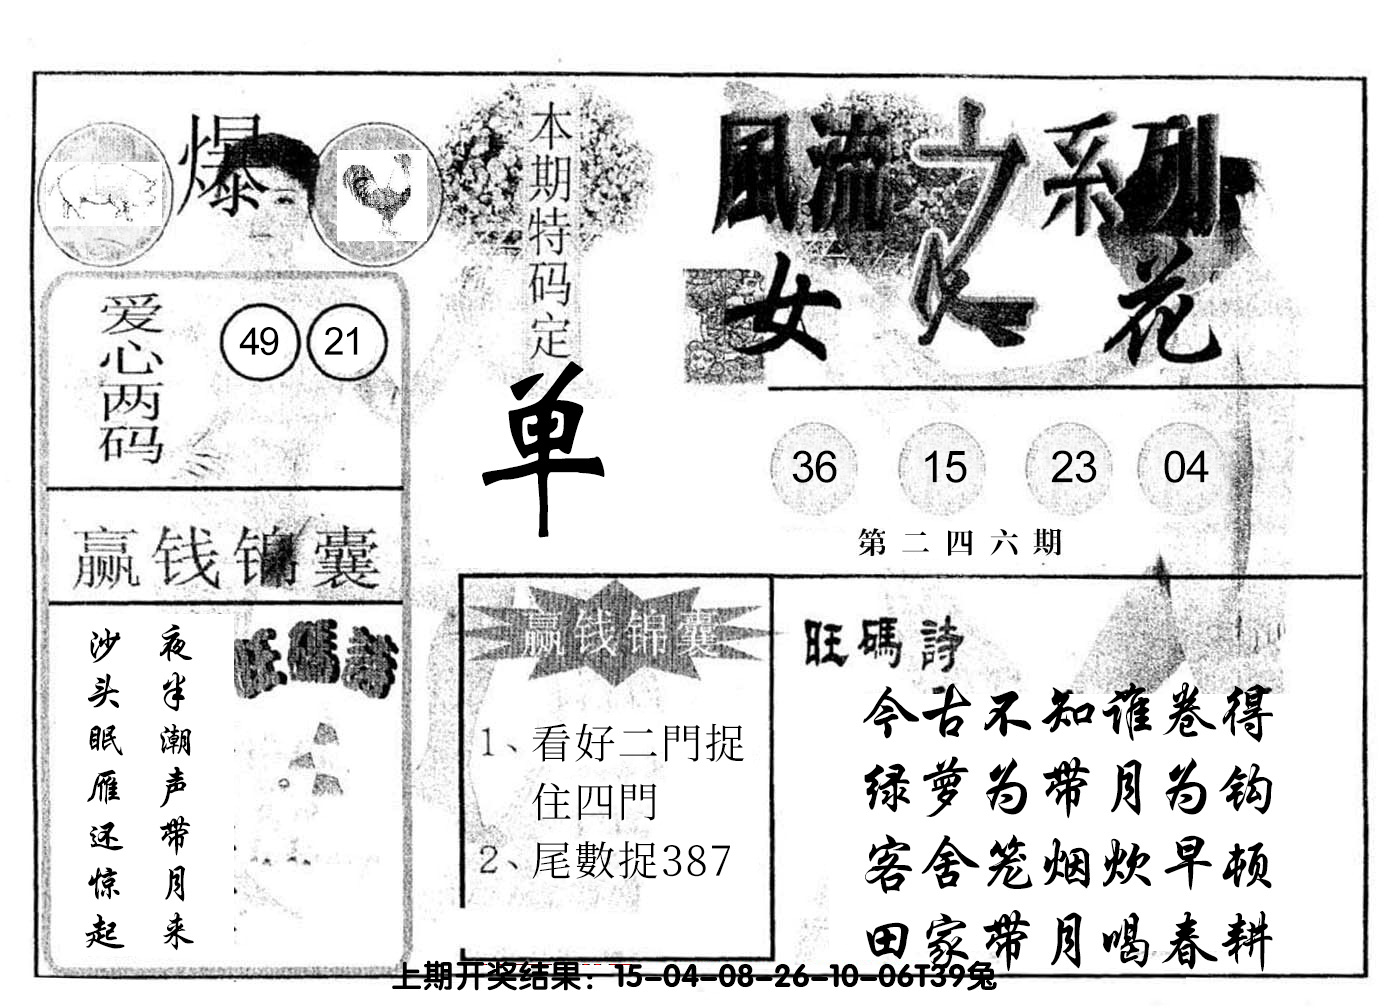 爆
本期特码定
单
風流之系列
女人花
爱心两码
49 21
36 15 23 04
第二四六期
赢钱锦囊
旺碼詩
夜半潮声带月来
沙头眠雁还惊起
赢钱锦囊
1、看好二門捉
住四門
2、尾數捉387
旺碼詩
今古不知谁卷得
绿萝为带月为钩
客舍笼烟炊早顿
田家带月喝春耕
上期开奖结果：15-04-08-26-10-06T39兔